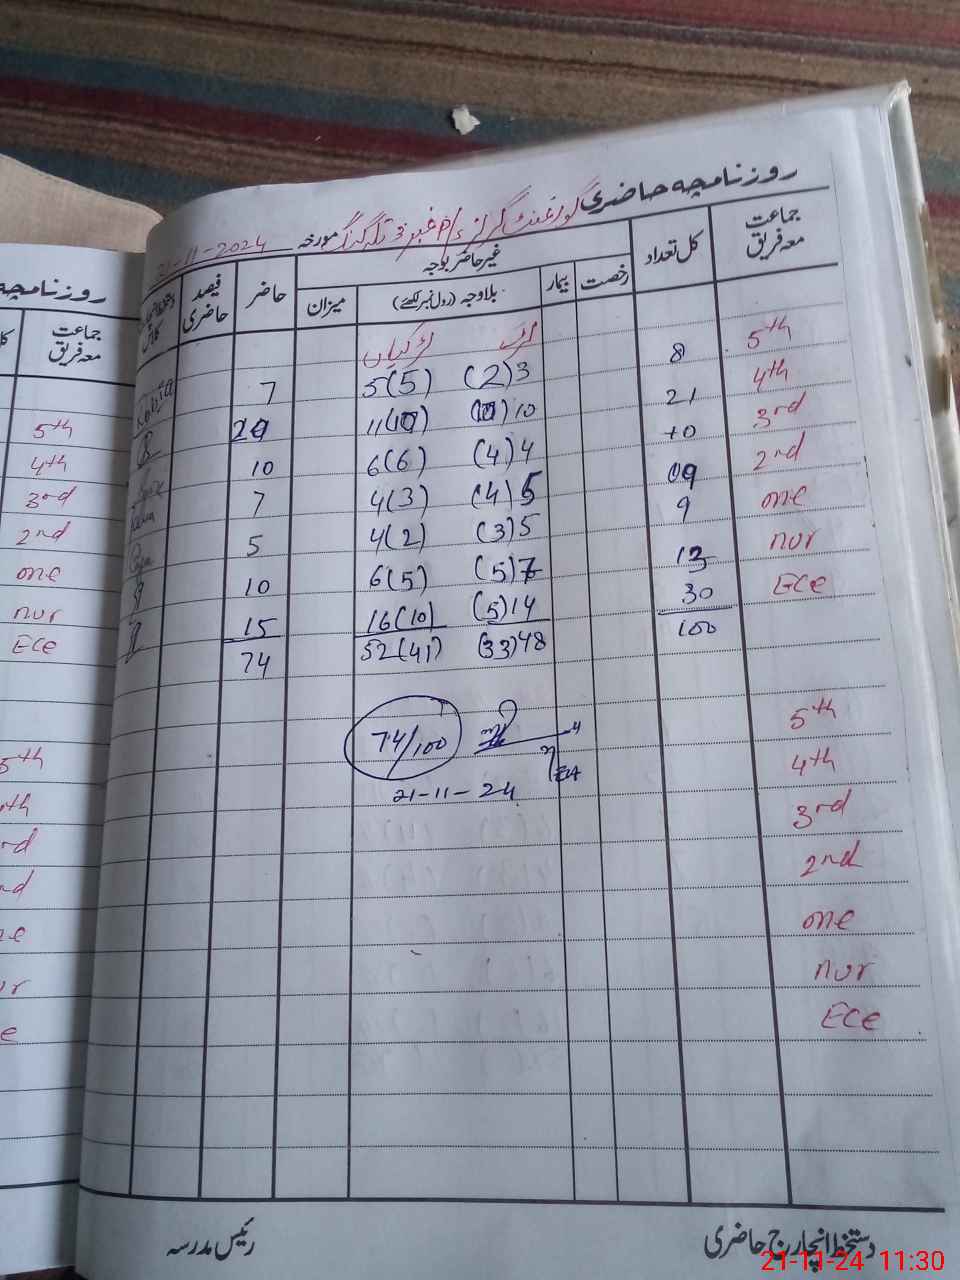 روزنامچہ حاضری
گورنمنٹ گرلز
مورخہ 21-11-2024
جماعت معہ فریق
کل تعداد
غیر حاضر بوجہ
رخصت
بیمار
بلاوجہ (رول نمبر لکھئے)
میزان
حاضر
فیصد حاضری
لڑکیاں
5th 8 (2)3 5(5) 7
4th 21 (10)10 11(10) 20
3rd 10 (4)4 6(6) 10
2nd 09 (4)5 4(3) 7
one 9 (3)5 4(2) 5
nur 13 (5)7 6(5) 10
ECE 30 (5)14 16(10) 15
100 (33)48 52(41) 74
74/100
21-11-24
5th
4th
3rd
2nd
one
nur
ECE
دستخط انچارج حاضری
رئیس مدرسہ
روزنامچہ
جماعت معہ فریق
5th
4th
3rd
2nd
one
nur
ECE
5th
21-11-24 11:30